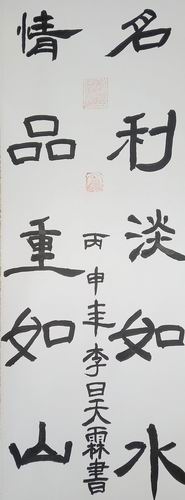 名利淡如水
情品重如山
丙申年李日天霖書